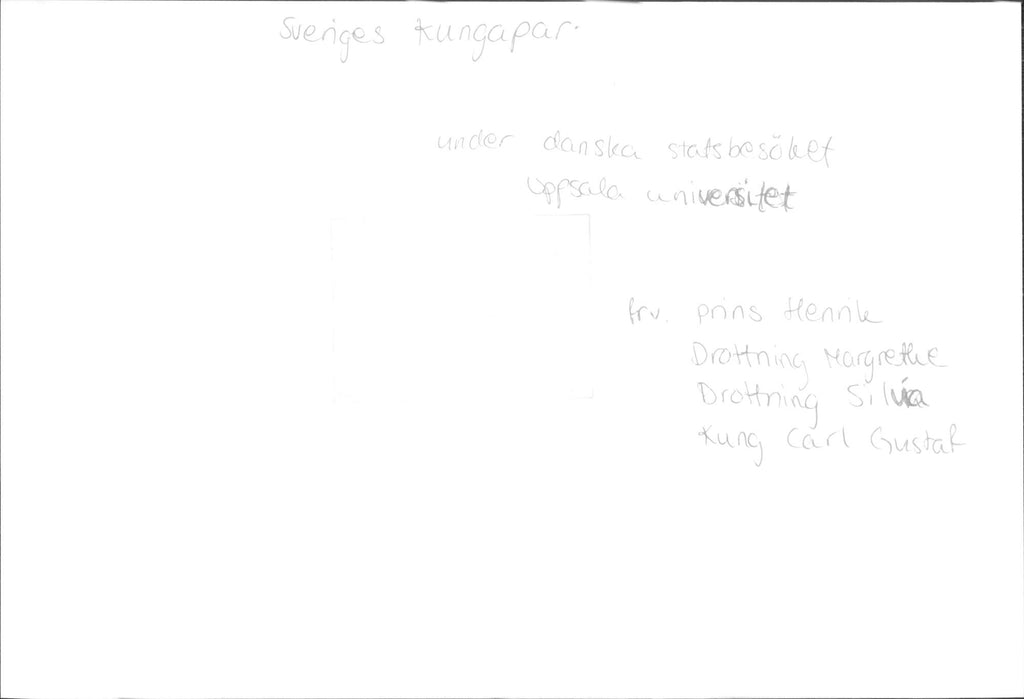 Sveriges Kungapar.
under danska statsbesöket
Uppsala universitet
frv. prins Henrik
Drottning Margrethe
Drottning Silvia
Kung Carl Gustaf